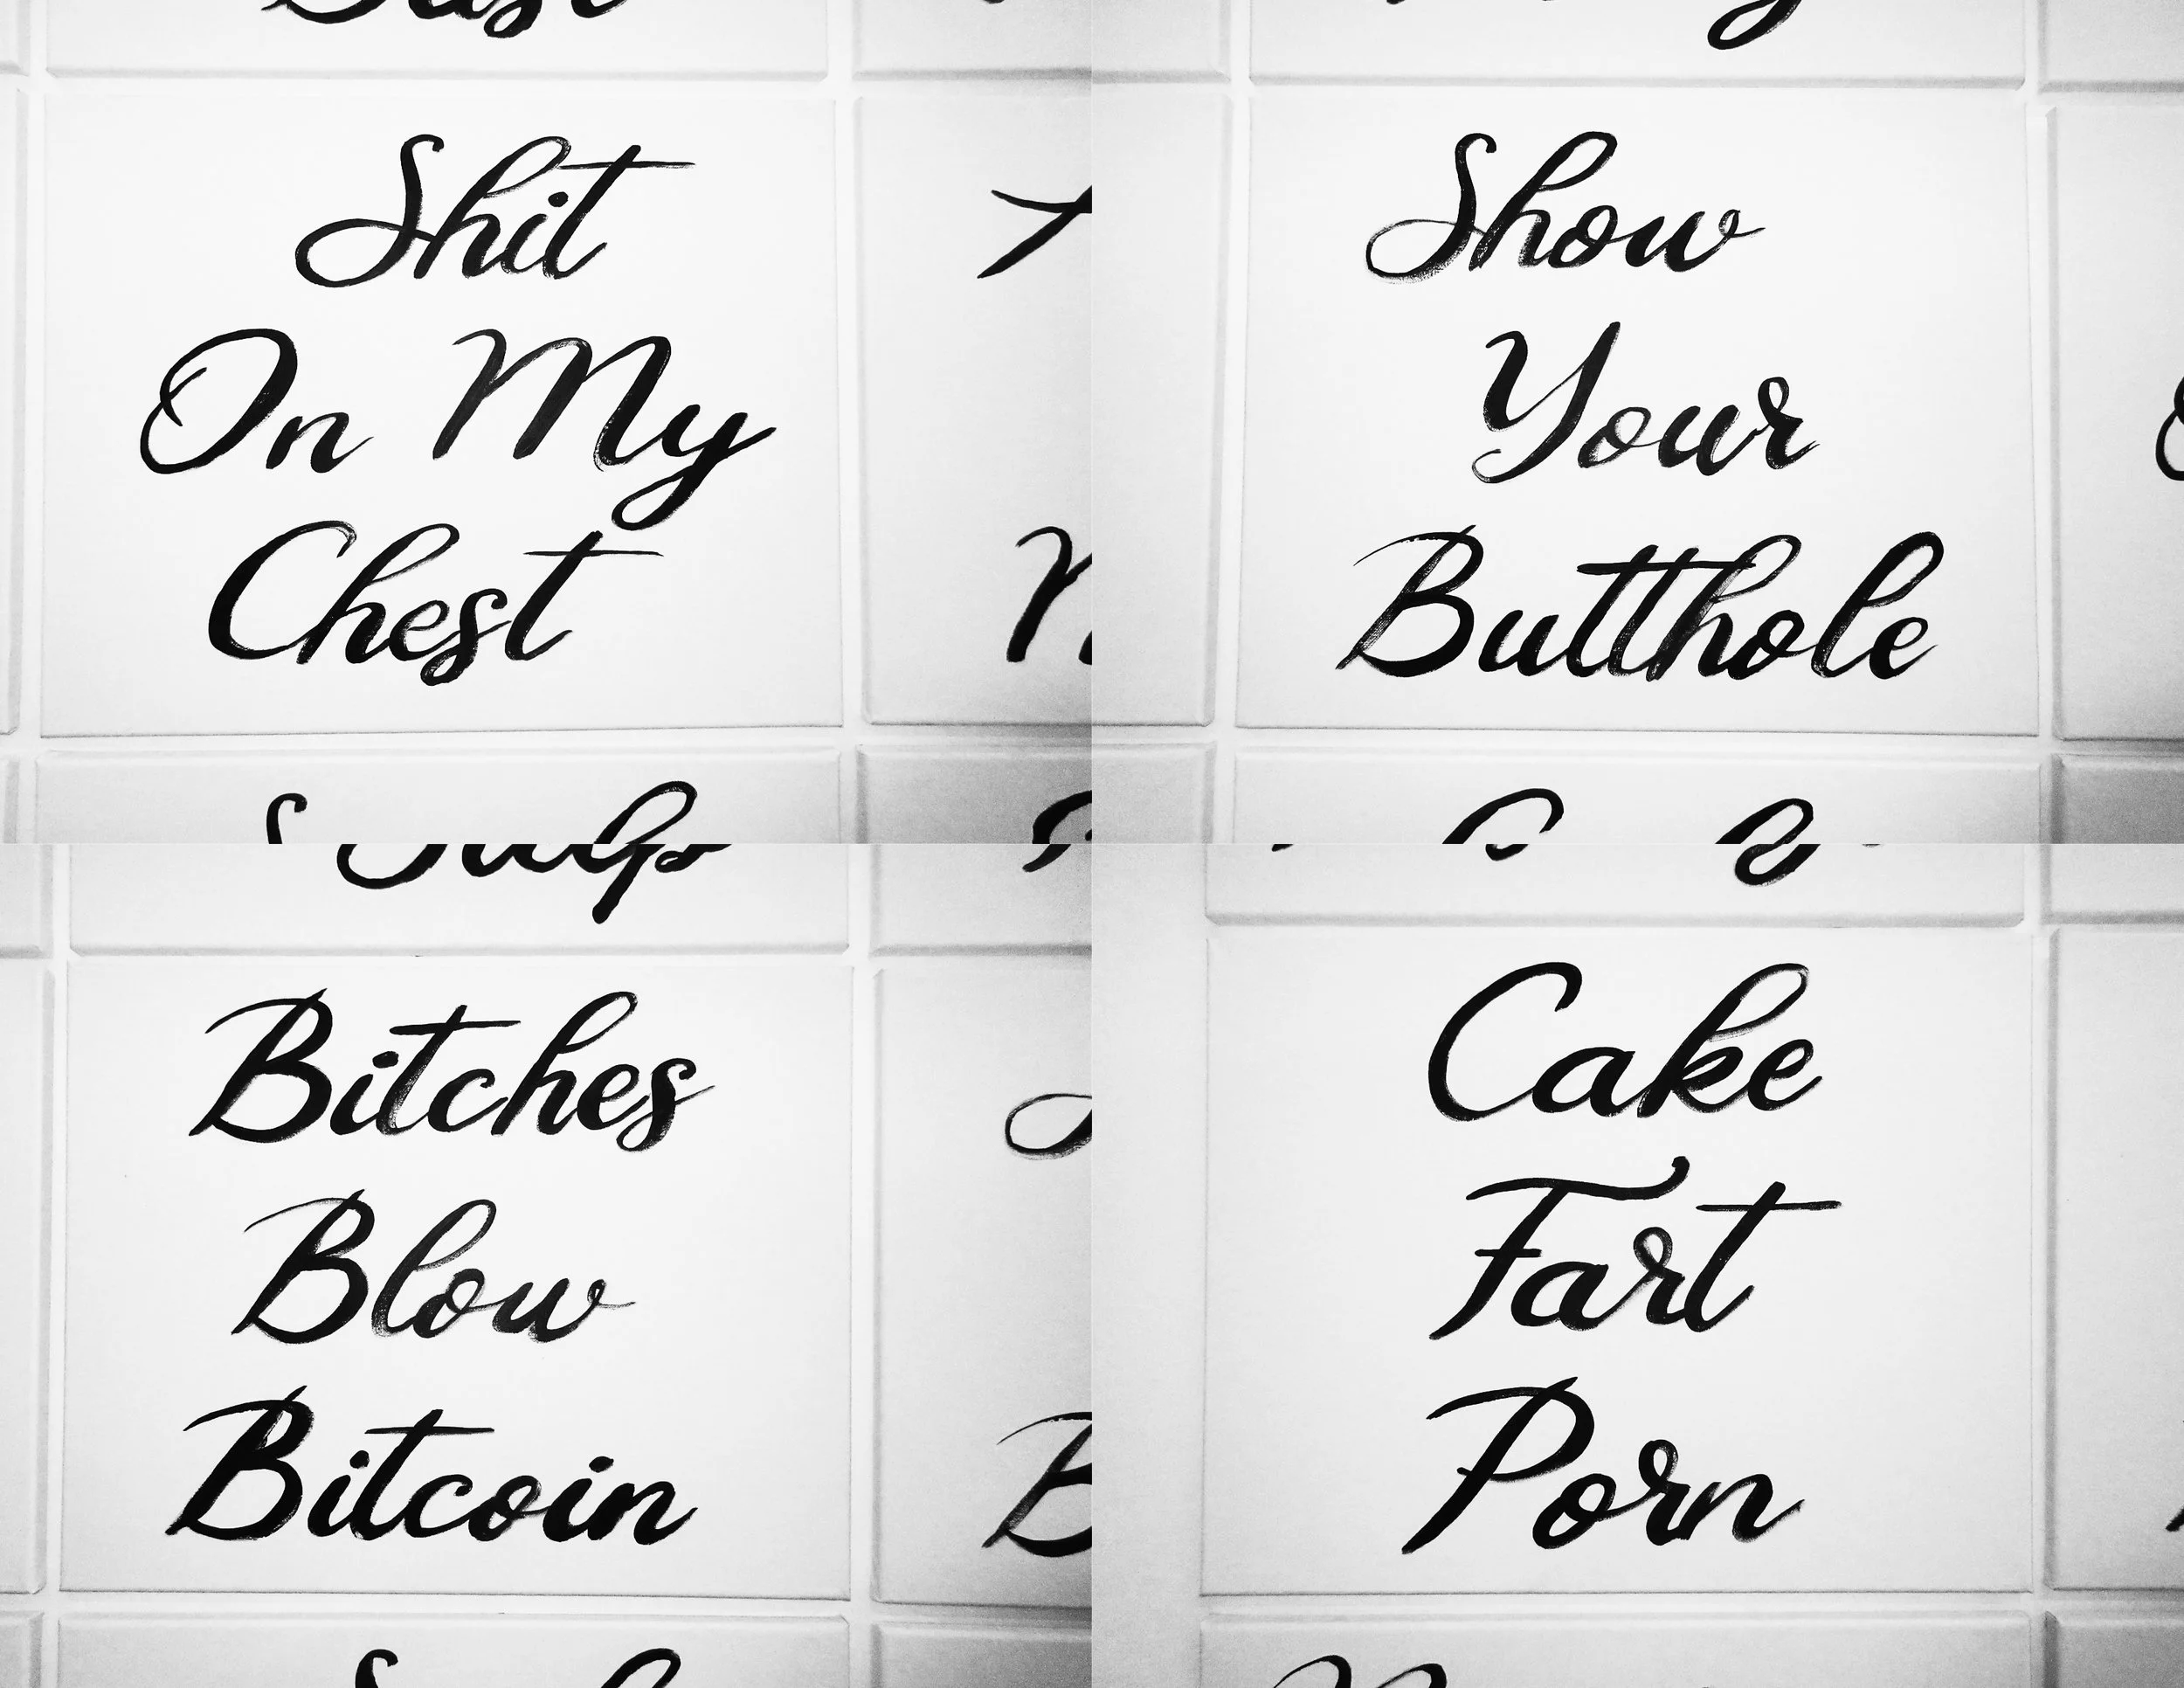 Shit
On My
Chest
Show
Your
Butthole
Bitches
Blow
Bitcoin
Cake
Fart
Porn